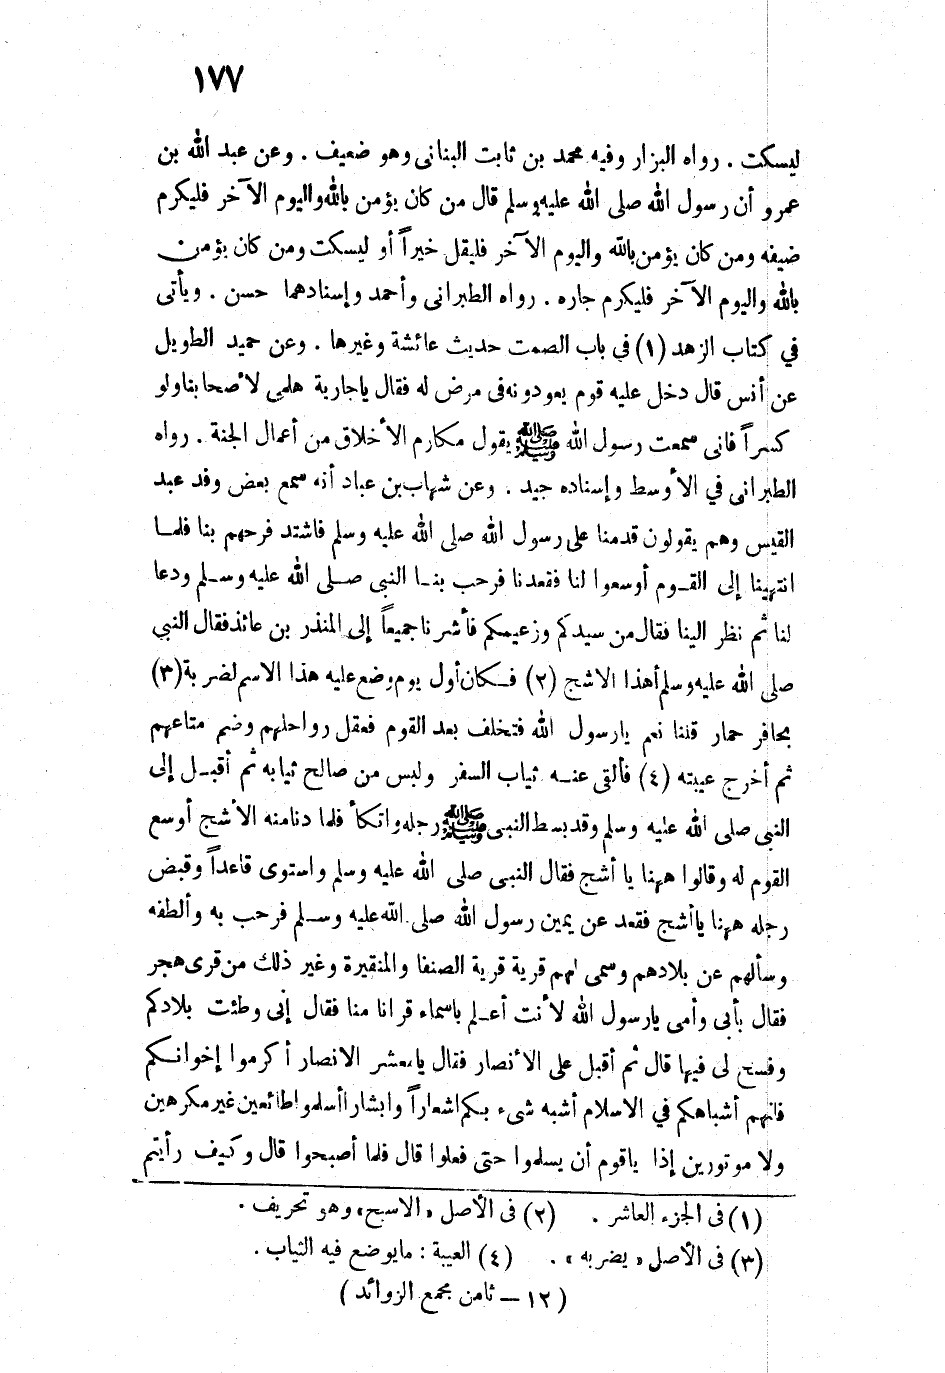 ١٧٧
ليسكت . رواه البزار وفيه محمد بن ثابت البنانى وهو ضعيف . وعن عبد الله بن
عمرو أن رسول الله صلى الله عليه وسلم قال من كان يؤمن بالله واليوم الآخر فليكرم
ضيفه ومن كان يؤمن بالله واليوم الآخر فليقل خيراً أو ليسكت ومن كان يؤمن
بالله واليوم الآخر فليكرم جاره . رواه الطبرانى وأحمد وإسنادهما حسن . ويأتى
في كتاب الزهد (١) في باب الصمت حديث عائشة وغيرها . وعن حميد الطويل
عن أنس قال دخل عليه قوم يعودونه فى مرض له فقال ياجارية هلمى لأصحابنا ولو
كسراً فانى سمعت رسول الله ﷺ يقول مكارم الأخلاق من أعمال الجنة . رواه
الطبرانى في الأوسط وإسناده جيد . وعن شهاب بن عباد أنه سمع بعض وفد عبد
القيس وهم يقولون قدمنا على رسول الله صلى الله عليه وسلم فاشتد فرحهم بنا فلمـا
انتهينا إلى القـوم أوسعوا لنا فقعدنا فرحب بنـا النبى صـلى الله عليه وسـلم ودعا
لنا ثم نظر الينا فقال من سيدكم وزعيمكم فأشرنا جميعاً إلى المنذر بن عائذ فقال النبي
صلى الله عليه وسلم أهذا الاشج (٢) فـكان أول يوم وضع عليه هذا الاسم لضربة (٣)
بحافر حمار قلنا نعم يارسول الله فتخلف بعد القوم فعقل رواحلهم وضم متاعهم
ثم أخرج عيبته (٤) فألقى عنـه ثياب السفر ولبس من صالح ثيابه ثم أقبـل إلى
النبى صلى الله عليه وسلم وقد بسط النبى ﷺ رجله واتكأ فلما دنا منه الأشج أوسع
القوم له وقالوا ههنا يا أشج فقال النبى صلى الله عليه وسلم واستوى قاعداً وقبض
رجله ههنا ياأشج فقعد عن يمين رسول الله صلى الله عليه وسـلم فرحب به وألطفه
وسألهم عن بلادهم وسمى لهم قرية قرية الصنفا والمنقيرة وغير ذلك من قرى هجر
فقال بأبى وأمى يارسول الله لأنت أعـلم باسماء قرانا منا فقال إنى وطئت بلادكم
وفسح لى فيها قال ثم أقبل على الأنصار فقال يامعشر الانصار أكرموا إخوانـكم
فانهم أشباهكم في الاسلام أشبه شىء بـكم اشعاراً وابشارا أسلموا طائعين غير مكرهين
ولا موتورين إذا ياقوم أن يسلموا حتى فعلوا قال فلما أصبحوا قال وكيف رأيتم
(١) فى الجزء العاشر . (٢) فى الأصل «الاسبح» وهو تحريف .
(٣) فى الأصل « يضربه » . (٤) العيبة : مايوضع فيه الثياب .
( ١٢ – ثامن مجمع الزوائد )